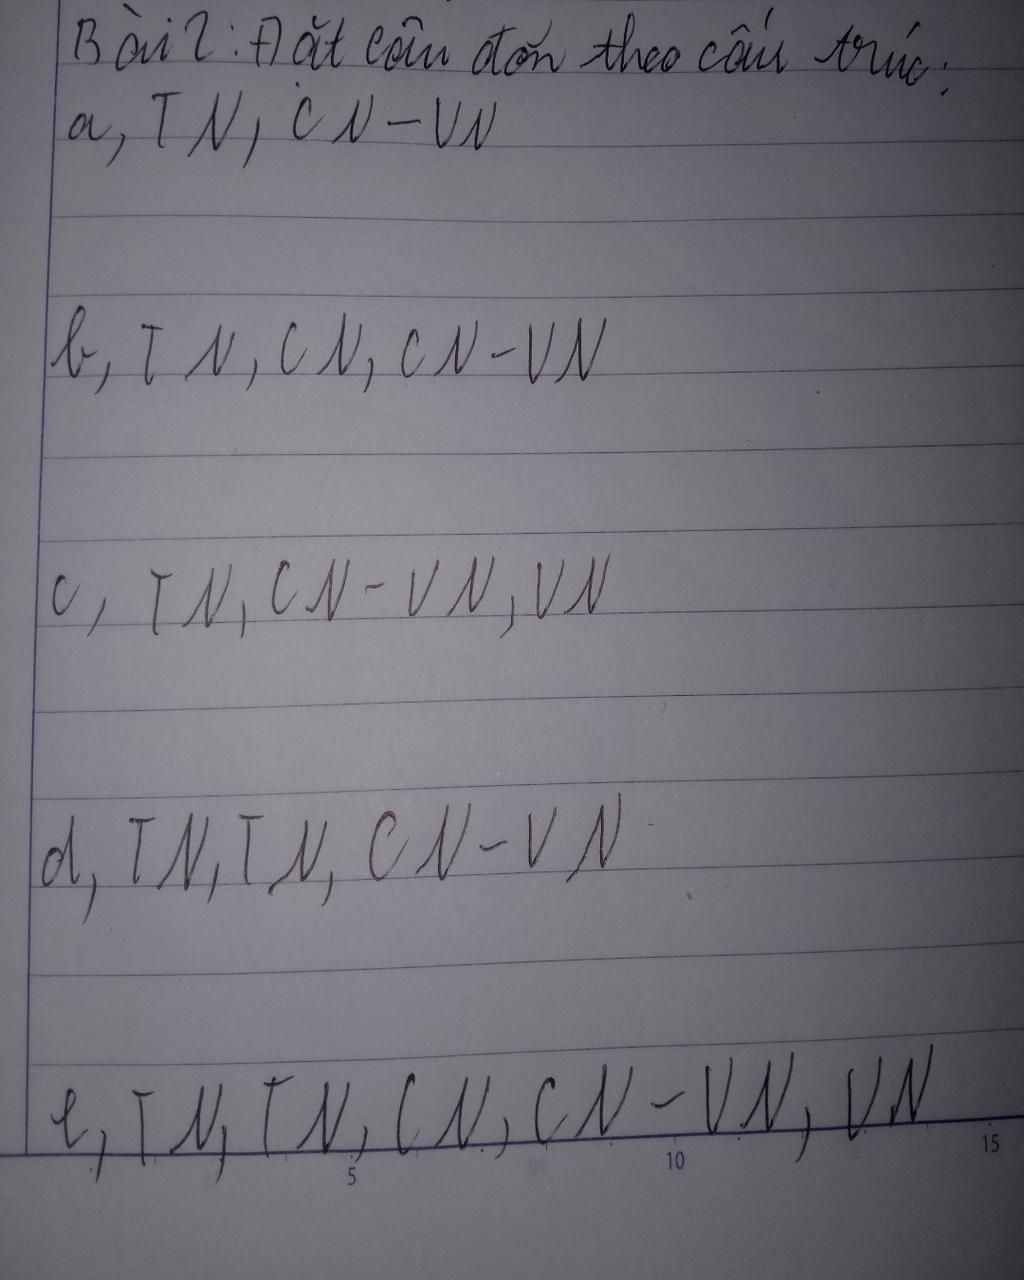 Bài 2: Đặt câu đơn theo cấu trúc:
a, TN, CN - VN
b, TN, CN, CN - VN
c, TN, CN - VN, VN
d, TN, TN, CN - VN
e, TN, TN, CN, CN - VN, VN
5 10 15